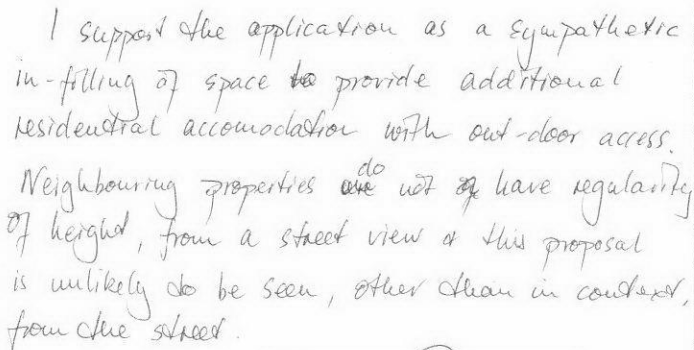 I support the application as a sympathetic
in-filling of space to provide additional
residential accomodation with out-door access.
Neighbouring properties do not have regularity
of height, from a street view & this proposal
is unlikely to be seen, other than in context,
from the street.